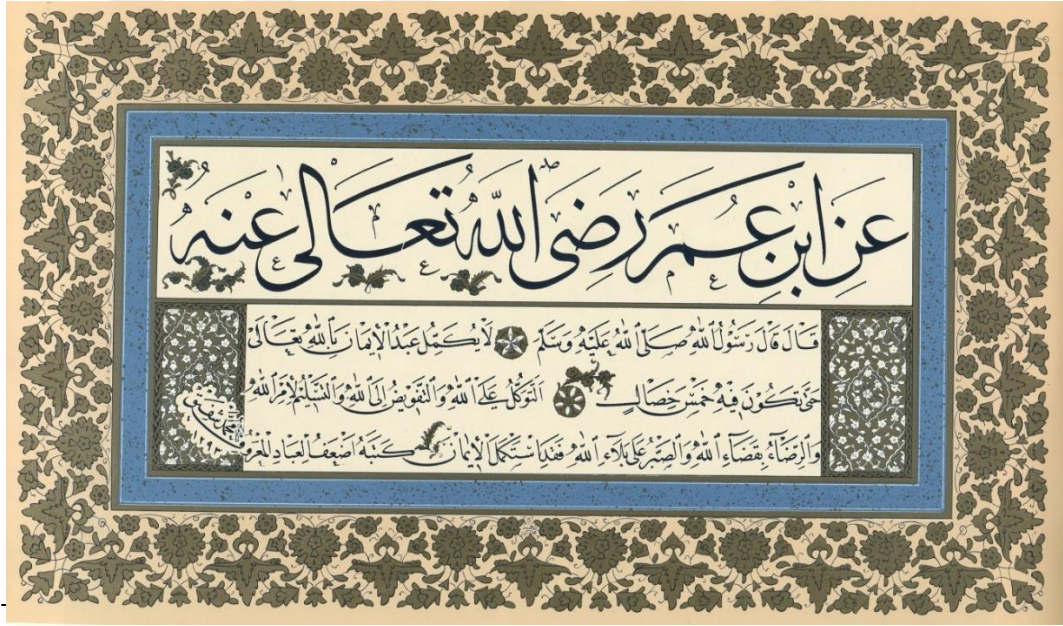 عَنِ ابْنِ عُمَرَ رَضِيَ اللهُ تَعَالٰى عَنْهُ
قَالَ قَالَ رَسُولُ اللهِ صَلَّى اللهُ عَلَيْهِ وَسَلَّمَ لَا يَكْمُلُ عَبْدُ الْاِيمَانَ بِاللهِ تَعَالٰى
حَتّٰى تَكُونَ فِيهِ خَمْسُ خِصَالٍ اَلتَّوَكُّلُ عَلَى اللهِ وَالتَّفْوِيضُ اِلَى اللهِ وَالتَّسْلِيمُ لِاَمْرِ اللهِ
وَالرِّضَاءُ بِقَضَاءِ اللهِ وَالصَّبْرُ عَلٰى بَلَاءِ اللهِ فَقَدِ اسْتَكْمَلَ الْاِيمَانَ كَتَبَهُ اَضْعَفُ الْعِبَادِ الْمَعْرُوف